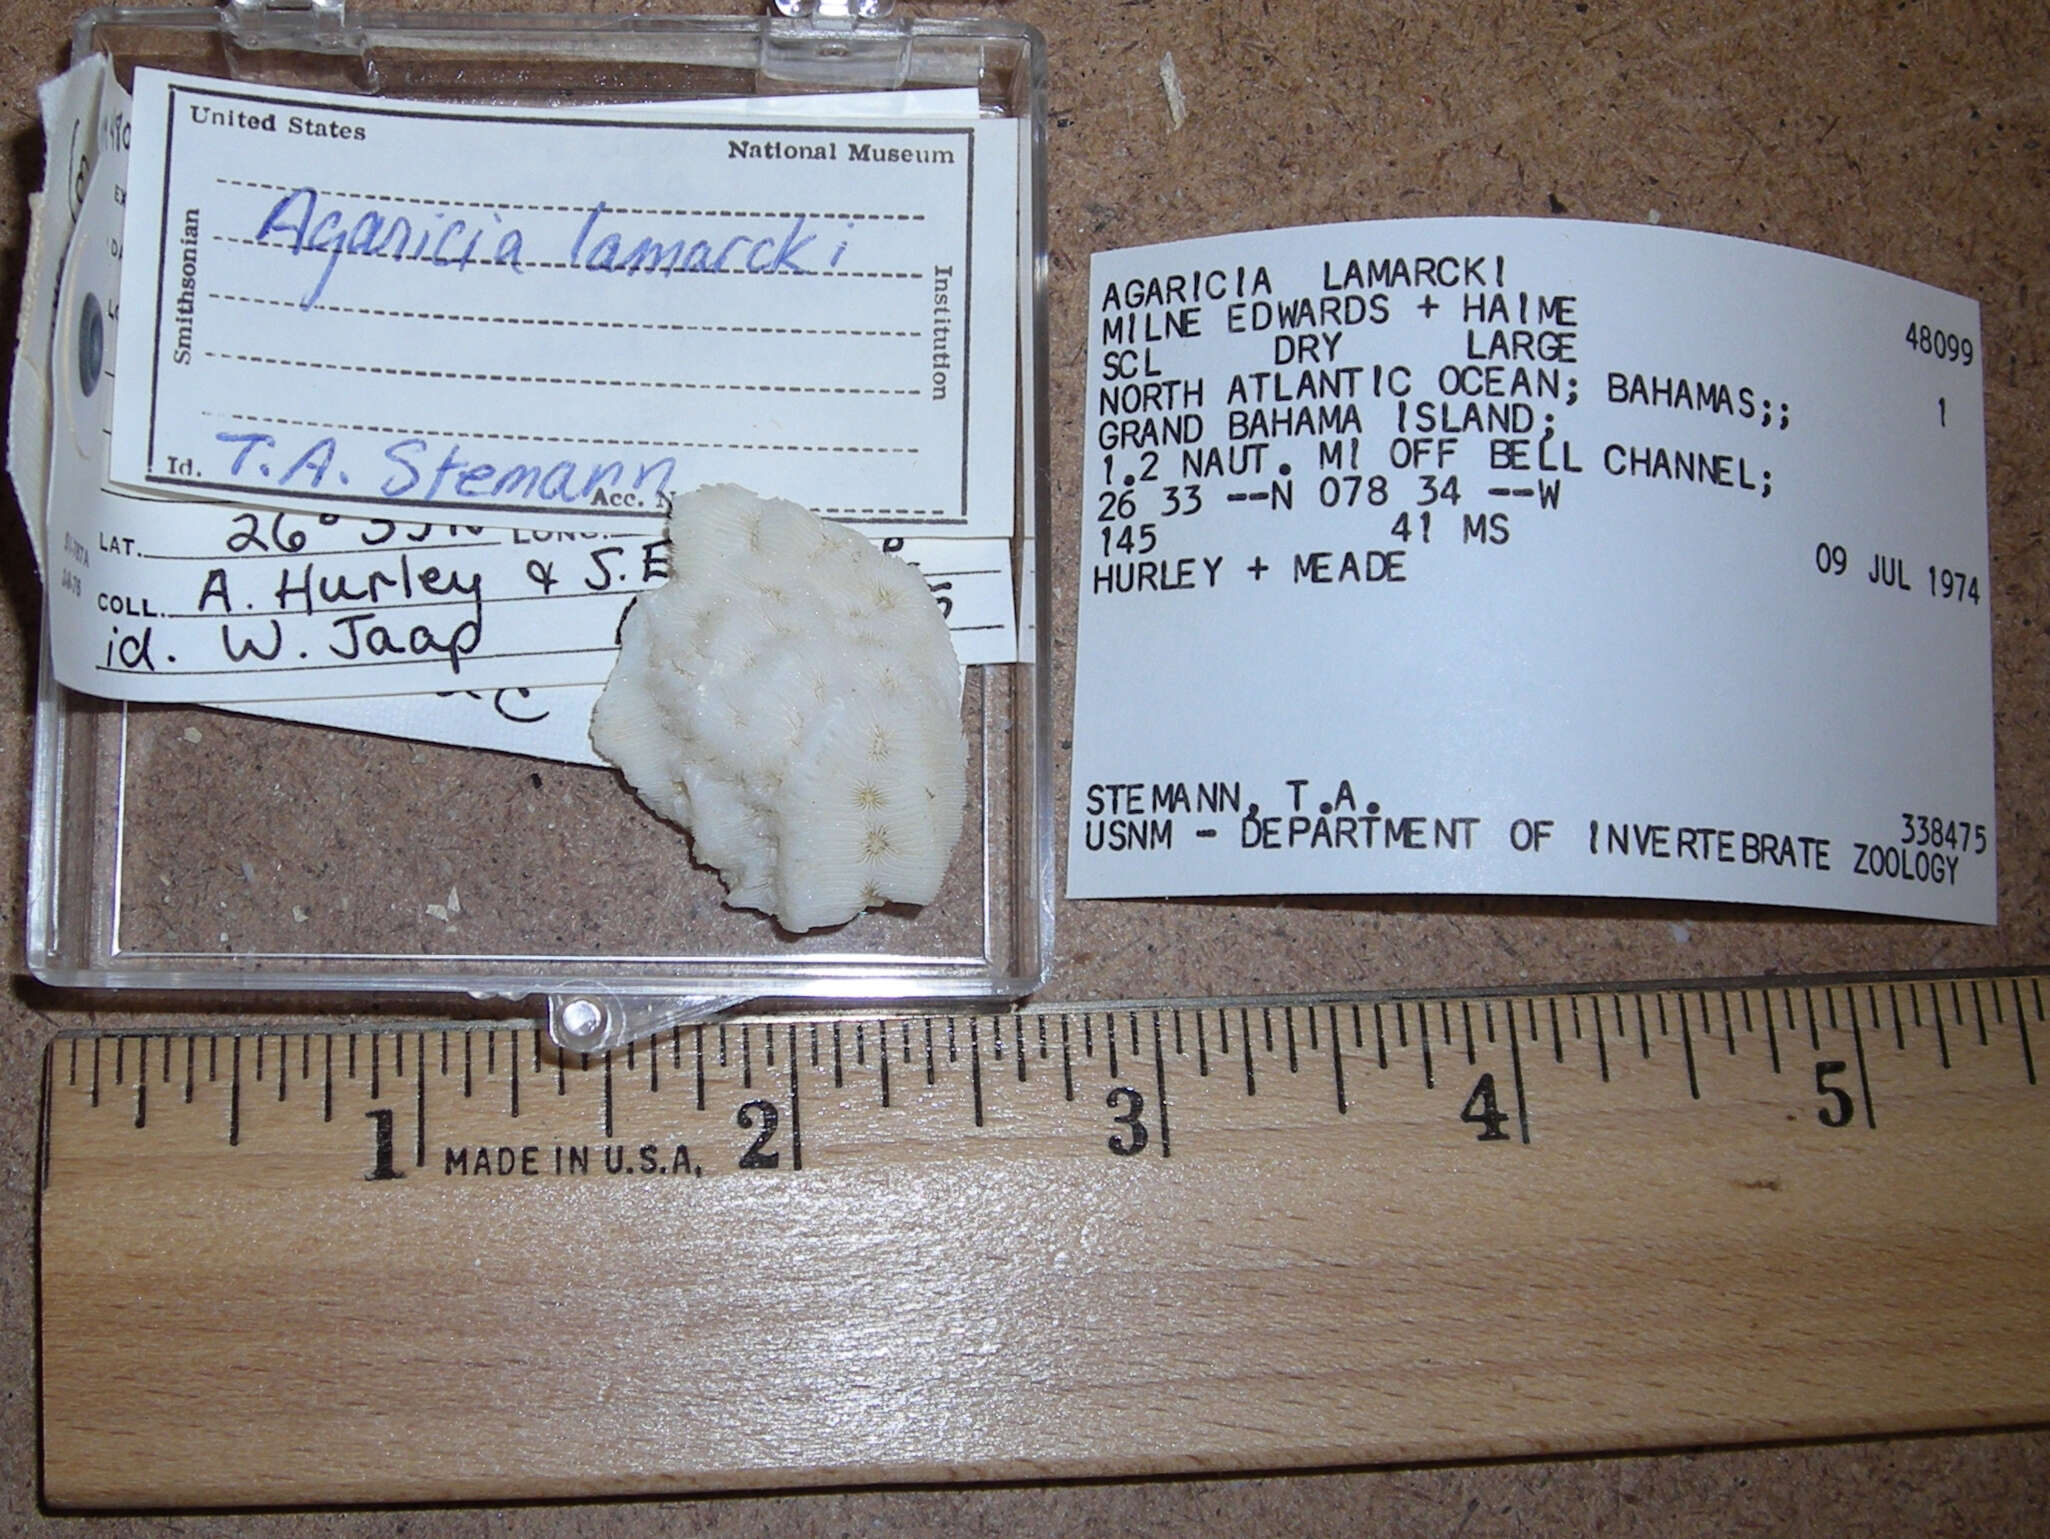 United States
National Museum
Smithsonian
Institution
Agaricia lamarcki
Id. T.A. Stemann
Acc.
LAT. 26°
COLL. A. Hurley & S.
id. W. Jaap
AGARICIA LAMARCKI
MILNE EDWARDS + HAIME 48099
SCL DRY LARGE
NORTH ATLANTIC OCEAN; BAHAMAS;; 1
GRAND BAHAMA ISLAND;
1.2 NAUT. MI OFF BELL CHANNEL;
26 33 --N 078 34 --W
145 41 MS
HURLEY + MEADE 09 JUL 1974
STEMANN, T.A. 338475
USNM - DEPARTMENT OF INVERTEBRATE ZOOLOGY
1 2 3 4 5
MADE IN U.S.A.